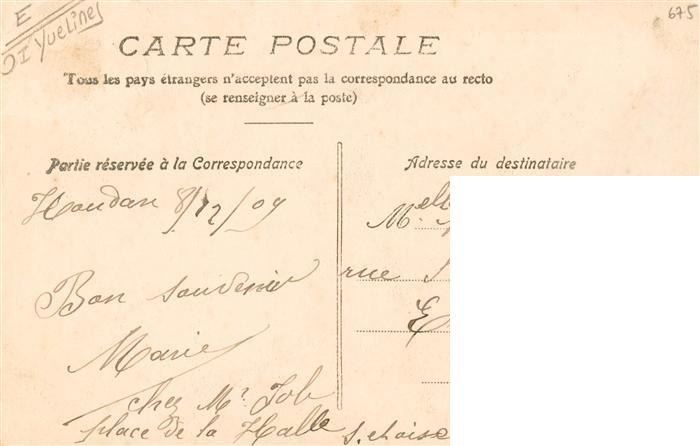 E
DI Yvelines
675
CARTE POSTALE
Tous les pays étrangers n'acceptent pas la correspondance au recto
(se renseigner à la poste)
Partie réservée à la Correspondance
Houdan 8/12/09
Bon souvenir
Marie
chez Mr Job
place de la Halle
S. et oise
Adresse du destinataire
Melle
rue